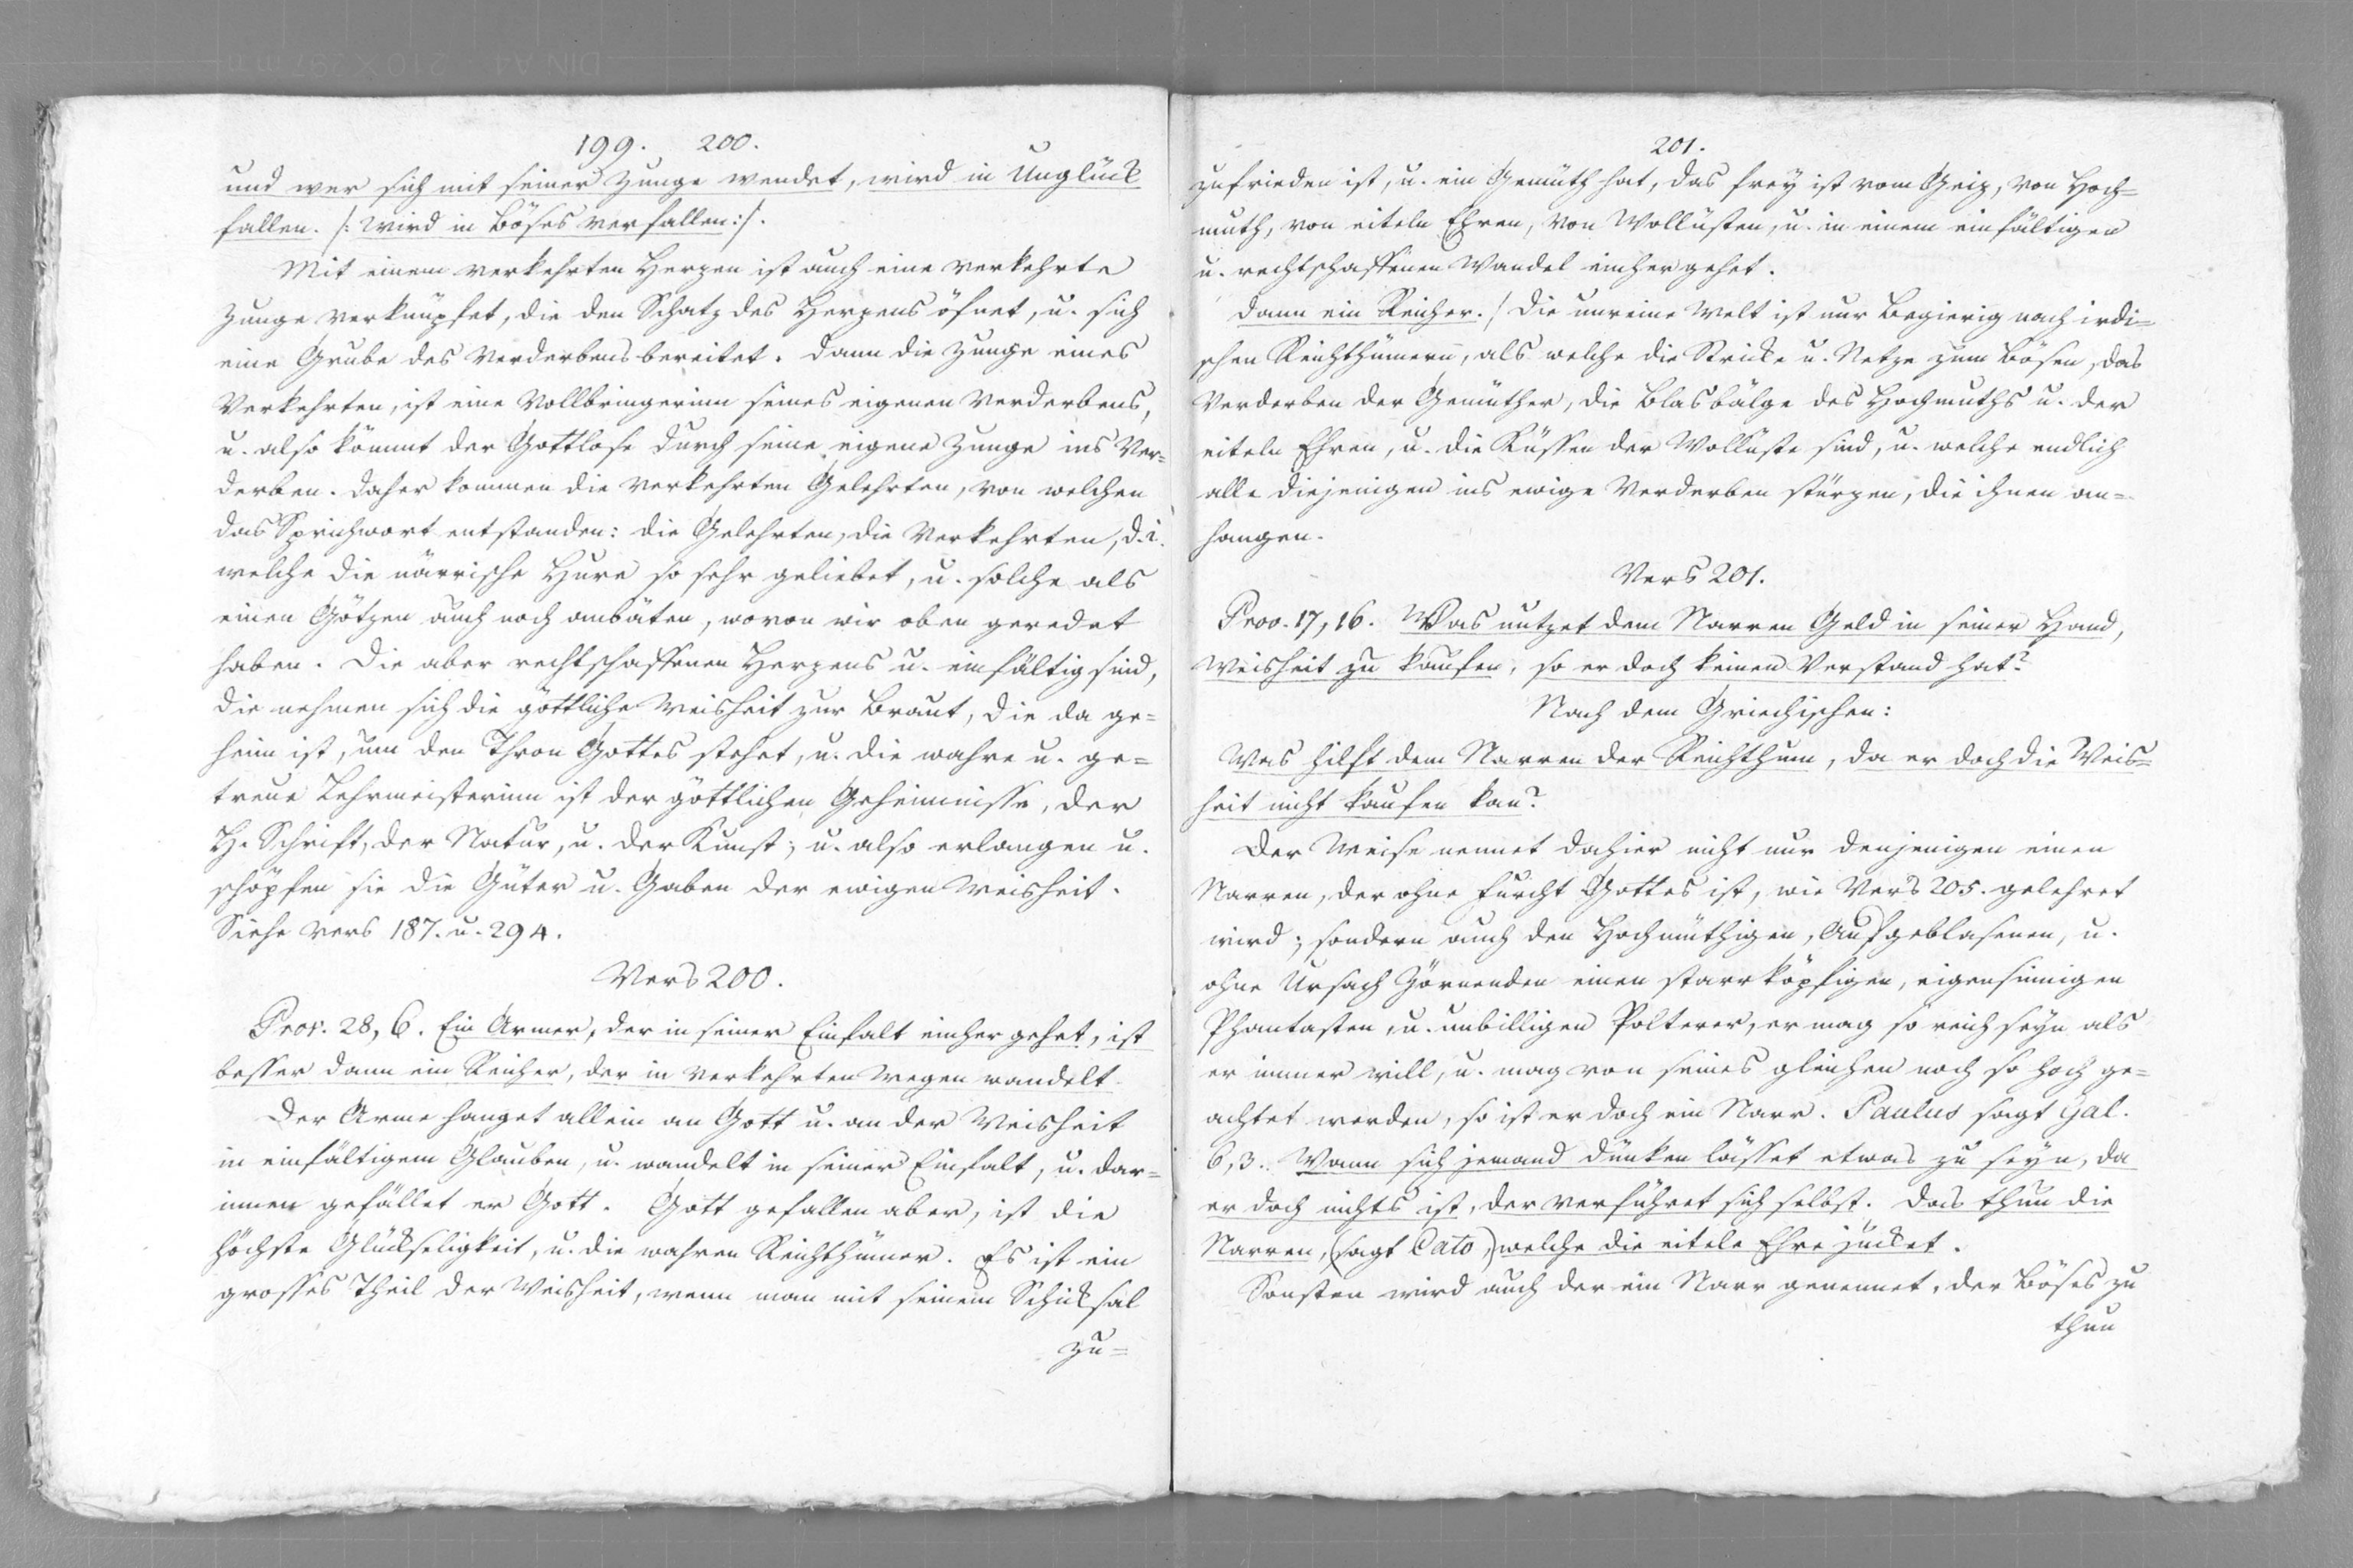 199. 200.
und wer sich mit seiner Zunge wendet, wird in Unglück
fallen. /: wird in Böses verfallen:/.
Mit einem verkehrten Herzen ist auch eine verkehrte
Zunge verknüpfet, die den Schatz des Herzens öfnet, u. sich
eine Grube des Verderbens bereitet. Dann die Zunge eines
Verkehrten, ist eine Vollbringerinn seines eigenen Verderbens,
u. also kömmt der Gottlose durch seine eigene Zunge ins Ver=
derben. Daher kommen die verkehrten Gelehrten, von welchen
das Sprichwort entstanden: die Gelehrten, die Verkehrten, d. i.
welche die närrische Hure so sehr geliebet, u. solche als
einen Götzen auch noch anbäten, wovon wir oben geredet
haben. Die aber rechtschaffenen Herzens u. einfältig sind,
die nehmen sich die göttliche Weisheit zur Braut, die da ge=
heim ist, um den Thron Gottes stehet, u. die wahre u. ge=
treue Lehrmeisterinn ist der göttlichen Geheimnisse, der
H. Schrift, der Natur, u. der Kunst; u. also erlangen u.
schöpfen sie die Güter u. Gaben der ewigen Weisheit.
Siehe Vers 187. u. 294.
Vers 200.
Prov. 28, 6. Ein Armer, der in seiner Einfalt einher gehet, ist
besser dann ein Reicher, der in verkehrten Wegen wandelt.
Der Arme hanget allein an Gott u. an der Weisheit
in einfältigem Glauben, u. wandelt in seiner Einfalt, u. dar=
innen gefället er Gott. Gott gefallen aber, ist die
höchste Glückseligkeit, u. die wahren Reichthümer. Es ist ein
grosses Theil der Weisheit, wenn man mit seinem Schicksal
zu=
201.
zufrieden ist, u. ein Gemüth hat, das frey ist vom Geiz, von Hoch=
muth, von eiteln Ehren, von Wollüsten, u. in einem einfältigen
u. rechtschaffenen Wandel einher gehet.
Dann ein Reicher. / Die unreine Welt ist nur begierig nach irdi=
schen Reichthümern, als welche die Stricke u. Netze zum Bösen, das
Verderben der Gemüther, die Blasbälge des Hochmuths u. der
eiteln Ehren, u. die Küssen der Wollüste sind, u. welche endlich
alle diejenigen ins ewige Verderben stürzen, die ihnen an=
hangen.
Vers 201.
Prov. 17, 16. Was nutzet dem Narren Geld in seiner Hand,
Weisheit zu kaufen, so er doch keinen Verstand hat?
Nach dem Griechischen:
Was hilft dem Narren der Reichthum, da er doch die Weis=
heit nicht kaufen kan?
Der Weise nennet dahier nicht nur denjenigen einen
Narren, der ohne Furcht Gottes ist, wie Vers 205. gelehret
wird; sondern auch den Hochmüthigen, Aufgeblasenen, u.
ohne Ursach Zörnenden einen starrköpfigen, eigensinnigen
Phantasten, u. unbilligen Polterer, er mag so reich seyn als
er immer will, u. mag von seines gleichen noch so hoch ge=
achtet werden, so ist er doch ein Narr. Paulus sagt Gal.
6, 3. Wann sich jemand dünken lässet etwas zu seyn, da
er doch nichts ist, der verführet sich selbst. Das thun die
Narren, (sagt Cato,) welche die eitele Ehre jücket.
Sonsten wird auch der ein Narr genennet, der Böses zu
thun